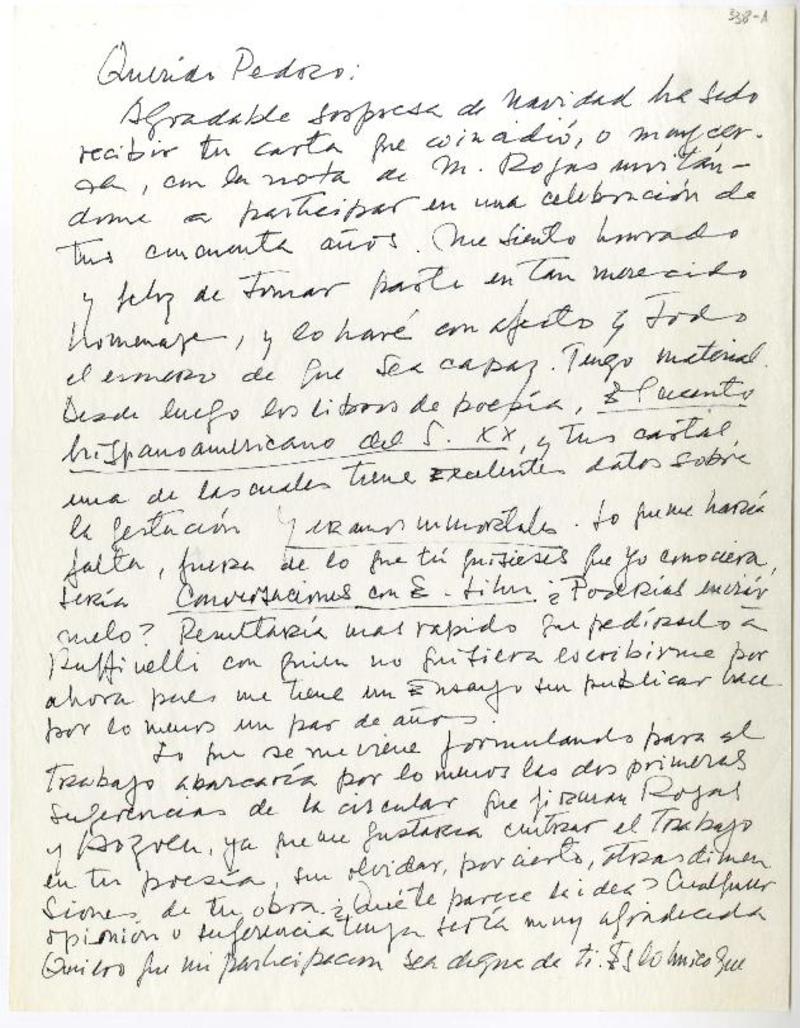 338-A
Querido Pedro:
Agradable sorpresa de Navidad ha sido
recibir tu carta que coincidió, o muy cer-
ca, con la nota de M. Rojas invitán-
dome a participar en una celebración de
tus cincuenta años. Me siento honrado
y feliz de tomar parte en tan merecido
homenaje, y lo haré con afecto y todo
el esmero de que sea capaz. Tengo material.
Desde luego los libros de poesía, El cuento
hispanoamericano del S. XX, y tus cartas,
una de las cuales tiene excelentes datos sobre
la gestación Y éramos inmortales. Lo que me haría
falta, fuera de lo que tú quisieses que yo conociera,
sería Conversaciones con E. Lihn. ¿Podrías enviár
melo? Resultaría mas rapido que pedírselo a
Ruffinelli con quien no quisiera escribirme por
ahora pues me tiene un Ensayo sin publicar hace
por lo menos un par de años.
Lo que se me viene formulando para el
trabajo abarcaría por lo menos las dos primeras
sugerencias de la circular que firman Rojas
y Hozven, ya que me gustaría centrar el trabajo
en tu poesía, sin olvidar, por cierto, otras dimen
siones de tu obra. ¿Qué te parece la idea? Cualquier
opinión o sugerencia tuya sería muy agradecida
Quiero que mi participacion sea digna de ti. Es lo unico que